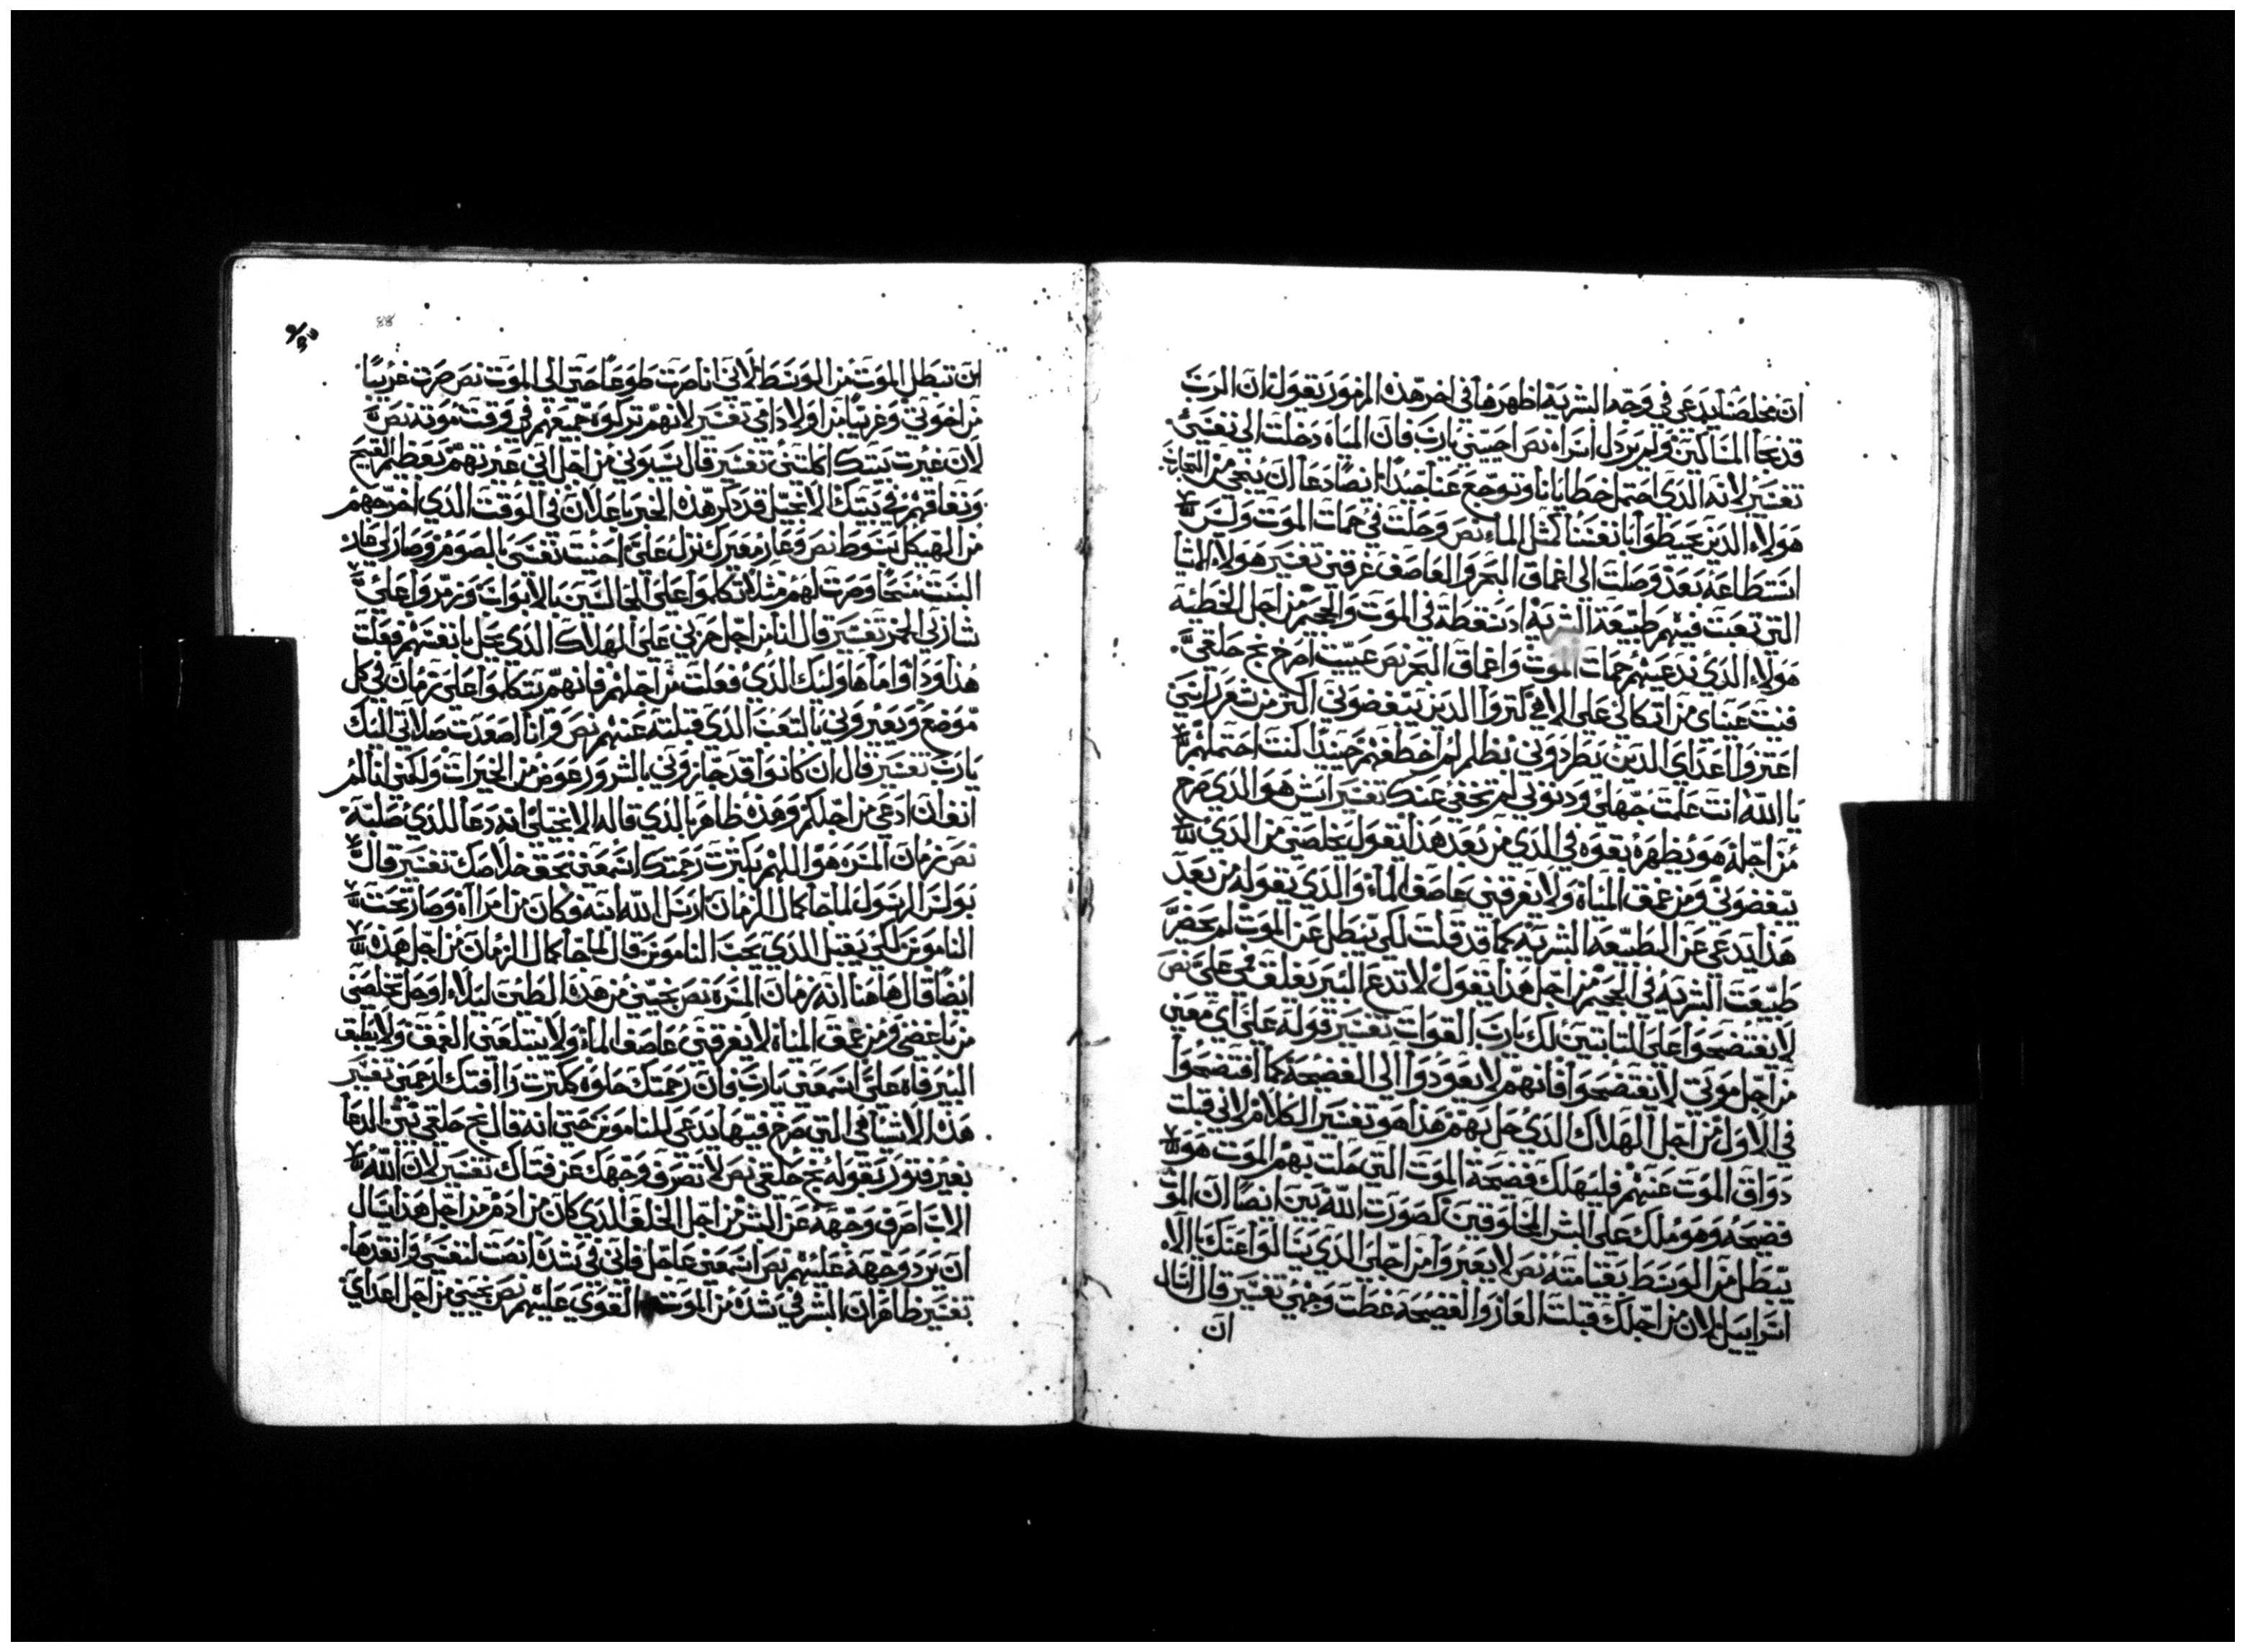 ان مخلصنا يدعي في وجه البشرية اظهرها في اخر هذه المزمور يقول ان الرب
قد نجا المساكين ولم يردل اسراه نص احييني يارب فان المياه دخلت الي نفسي
تفسير لانه الذي احتمل خطايانا وتوجع عنا جيدا ايضا دعا ان ينجي من التجارب
هولاء الذين يحيطوا بانفسنا كمثل الماء نص وحلت في حمات الموت وليس
استطاعه بعد وصلت الي اعماق البحر والعاصف غرقني تفسير هولاء المنايا
التي تعبت فيهم طبيعة البشرية اد سقطة في الموت والجحيم من اجل الخطيه
هولاء الذي تدعيهم حمات الموت واعماق البحر نص عييت اصرخ بح حلقي
فنت عيناي من اتكالي علي الاهي كتروا الذين يبغضوني اكتر من شعر راسي
اعتزوا اعداي الذين يطردوني بظلم لم اخطفهم حينيدا كنت احتملهم
يا الله انت علمت جهلي ودنوبي لم تخفي عنك تفسير ايش هو الذي صرخ
من اجله هو يظهره بقوه في الذي من بعد هذا يقول يخلصني من الذي
يبغضوني ومن عمق المياه ولا يغرقني عاصف الماء والذي يقوله من بعد
هذا يدعي عن الطبيعه البشريه كما قد قلت لكي تبطل عن الموت لم يحصر
طبيعت البشريه في الجحيم من اجل هذا يقول لا تدع البير يغلق فمي علي نص
لا يفتضحوا علي التابتين لك يارب القوات تفسير قوله علي اي معني
من اجل موتي لا يفتضحوا فانهم لا يعودوا الي الفضيحة كما افتضحوا
في الاول من اجل الهلاك الذي حل بهم هذا هو تفسير الكلام لاني قبلت
دواق الموت عنهم فليهلك فضيحة الموت التي حلت بهم الموت هو
فضيحه وهو ملك علي البشر المخلوقين كصورت الله بين ايضا ان الموت
يبطل من الوسط بقيامته نص لا يعيروا من اجلي الذي يسالوا عنك يا الاه
اسراييل لان من اجلك قبلت العار والفضيحه غطت وجهي تفسير قال اسال
ان
ان تبطل الموت من الوسط لاني انا صرت طوعا حتي الي الموت نص صرت غريبا
من اخوتي وغريبا من اولاد امي تفسير لانهم تركوه جميعهم في وقت موته نص
لان غيرت بيتك اكلتني تفسير قال يسبوني من اجل اني عيرتهم بعظم القبيح
ونفاقهم في بيتك الانجيل قد دكر هذه الخبر باعلان في الوقت الذي اخرجهم
من الهيكل بسوط نص وعار معيرك نزل علي احنيت نفسي بالصوم وصار لي عار
البست مسحا وصرت لهم مثلا تكلموا علي الجالسين بالابواب وزمروا علي
شاربي الخمر تفسير قال انا من اجل حزني علي الهلاك الذي يحل بانفسهم فعلت
هذا ودا واما هاوليك الذي فعلت من اجلهم فانهم يتكلموا علي زمان في كل
موضع ويعيروني بالتعب الذي قبلته عنهم نص وانا اصعدت صلاتي اليك
يارب تفسير قال ان كانوا قد جازوني بالشرور عوض من الخيرات ولكني انا لم
انفا ان ادعي من اجلكم وهذه ظاهر بالذي قاله الانجيلي انه دعا للذي صلبه
نص زمان المسره هو اللهم بكترت رحمتك اسمعني بحق خلاصك تفسير قال
بولس الرسول لما جا كمال الزمان ارسل الله ابنه وكان من امراه وصار تحت
الناموس لكي يقبل للذي تحت الناموس قال لما جا كمال الزمان من اجل هذه
ايضا قال هاهنا انه زمان المسره نص نجيني من هذه الطين ليلا اوحل تخلصي
من باغضي ومن عمق المياه لا يغرقني عاصف الماء ولا يبتلعني العمق ولا يطبق
البير فاه علي اسمعني يارب فان رحمتك حلوه كمكترت رافتك ارحمني تفسير
هذه الاشيا هي التي صرخ فيها يدعي للناموس حتي انه قال بح حلقي بين الدعا
بغير فتور بقوله بح حلقي نص لا تصرف وجهك عن فتاك تفسير لان الله
الاب اصرف وجهه عن البشر من اجل الخلف الذي كان من ادم من اجل هذا يسال
ان يرد وجهه عليهم نص اسمعني عاجل فاني في شده انصت لنفسي وانقدها
تفسير ظاهر ان البشر في شده من الموت القوي عليهم نص نجيني من اجل اعداي